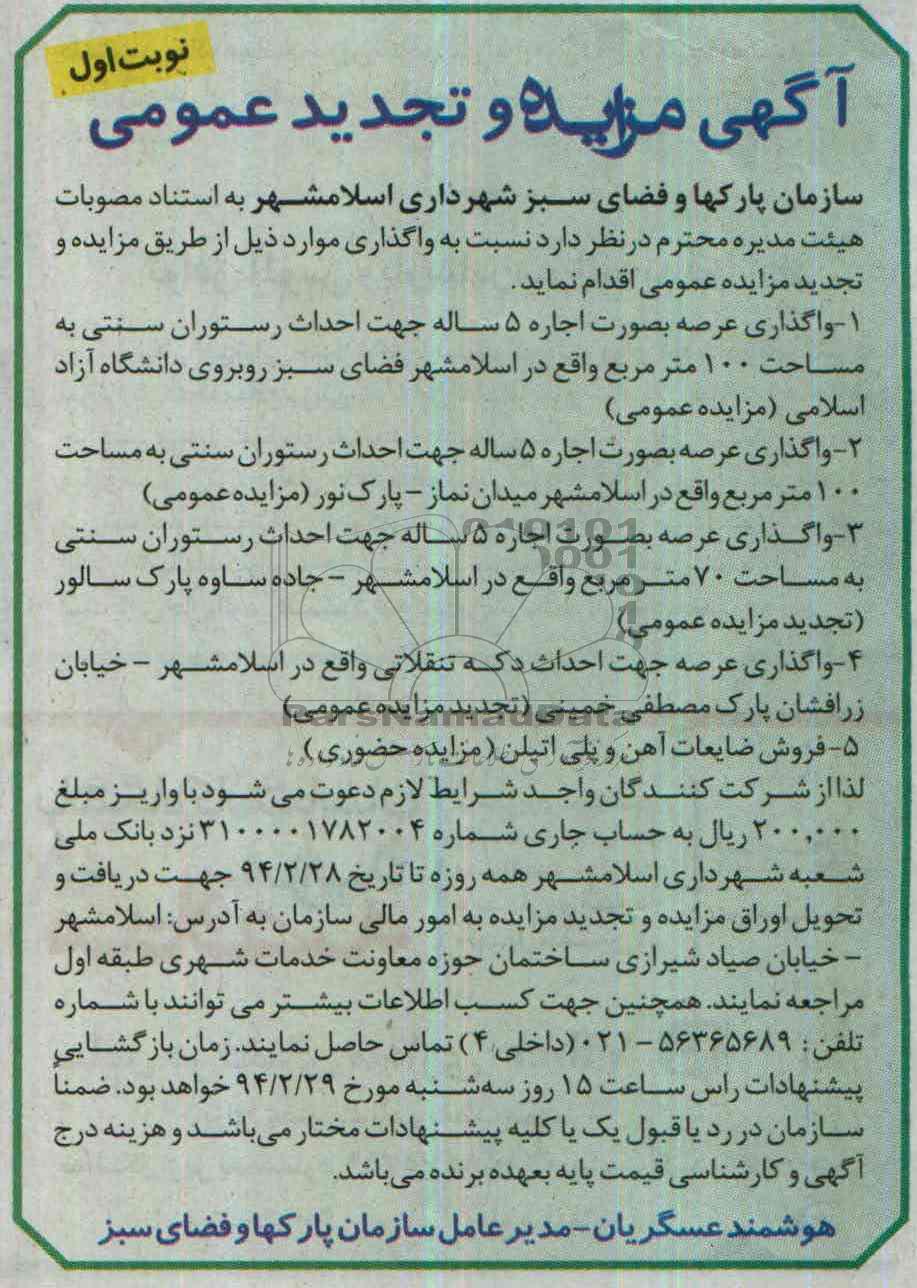 نوبت اول
آگهی مزایده و تجدید عمومی
سازمان پارکها و فضای سبز شهرداری اسلامشهر به استناد مصوبات
هیئت مدیره محترم در نظر دارد نسبت به واگذاری موارد ذیل از طریق مزایده و
تجدید مزایده عمومی اقدام نماید.
۱-واگذاری عرصه بصورت اجاره ۵ ساله جهت احداث رستوران سنتی به
مساحت ۱۰۰ متر مربع واقع در اسلامشهر فضای سبز روبروی دانشگاه آزاد
اسلامی (مزایده عمومی)
۲-واگذاری عرصه بصورت اجاره ۵ ساله جهت احداث رستوران سنتی به مساحت
۱۰۰ متر مربع واقع در اسلامشهر میدان نماز - پارک نور (مزایده عمومی)
۳-واگذاری عرصه بصورت اجاره ۵ ساله جهت احداث رستوران سنتی
به مساحت ۷۰ متر مربع واقع در اسلامشهر - جاده ساوه پارک سالور
(تجدید مزایده عمومی)
۴-واگذاری عرصه جهت احداث دکه تنقلاتی واقع در اسلامشهر - خیابان
زرافشان پارک مصطفی خمینی (تجدید مزایده عمومی)
ParsNamadData
۵-فروش ضایعات آهن و پلی اتیلن (مزایده حضوری)
لذا از شرکت کنندگان واجد شرایط لازم دعوت می شود با واریز مبلغ
۲۰۰,۰۰۰ ریال به حساب جاری شماره ۳۱۰۰۰۰۱۷۸۲۰۰۴ نزد بانک ملی
شعبه شهرداری اسلامشهر همه روزه تا تاریخ ۹۴/۲/۲۸ جهت دریافت و
تحویل اوراق مزایده و تجدید مزایده به امور مالی سازمان به آدرس: اسلامشهر
- خیابان صیاد شیرازی ساختمان حوزه معاونت خدمات شهری طبقه اول
مراجعه نمایند. همچنین جهت کسب اطلاعات بیشتر می توانند با شماره
تلفن: ۵۶۳۶۵۶۸۹ - ۰۲۱ (داخلی ۴) تماس حاصل نمایند. زمان بازگشایی
پیشنهادات راس ساعت ۱۵ روز سه‌شنبه مورخ ۹۴/۲/۲۹ خواهد بود. ضمناً
سازمان در رد یا قبول یک یا کلیه پیشنهادات مختار می‌باشد و هزینه درج
آگهی و کارشناسی قیمت پایه بعهده برنده می‌باشد.
هوشمند عسگریان-مدیر عامل سازمان پارکها و فضای سبز